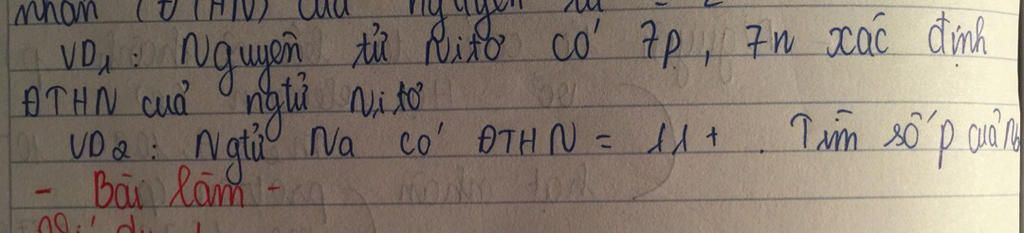 nhân (ĐTHN) của nguyên tử
VD1: Nguyên tử Nitơ có 7p, 7n xác định
ĐTHN của ngtử Nitơ
VD2: Ngtử Na có ĐTHN = 11+. Tìm số p của Na
- Bài làm -